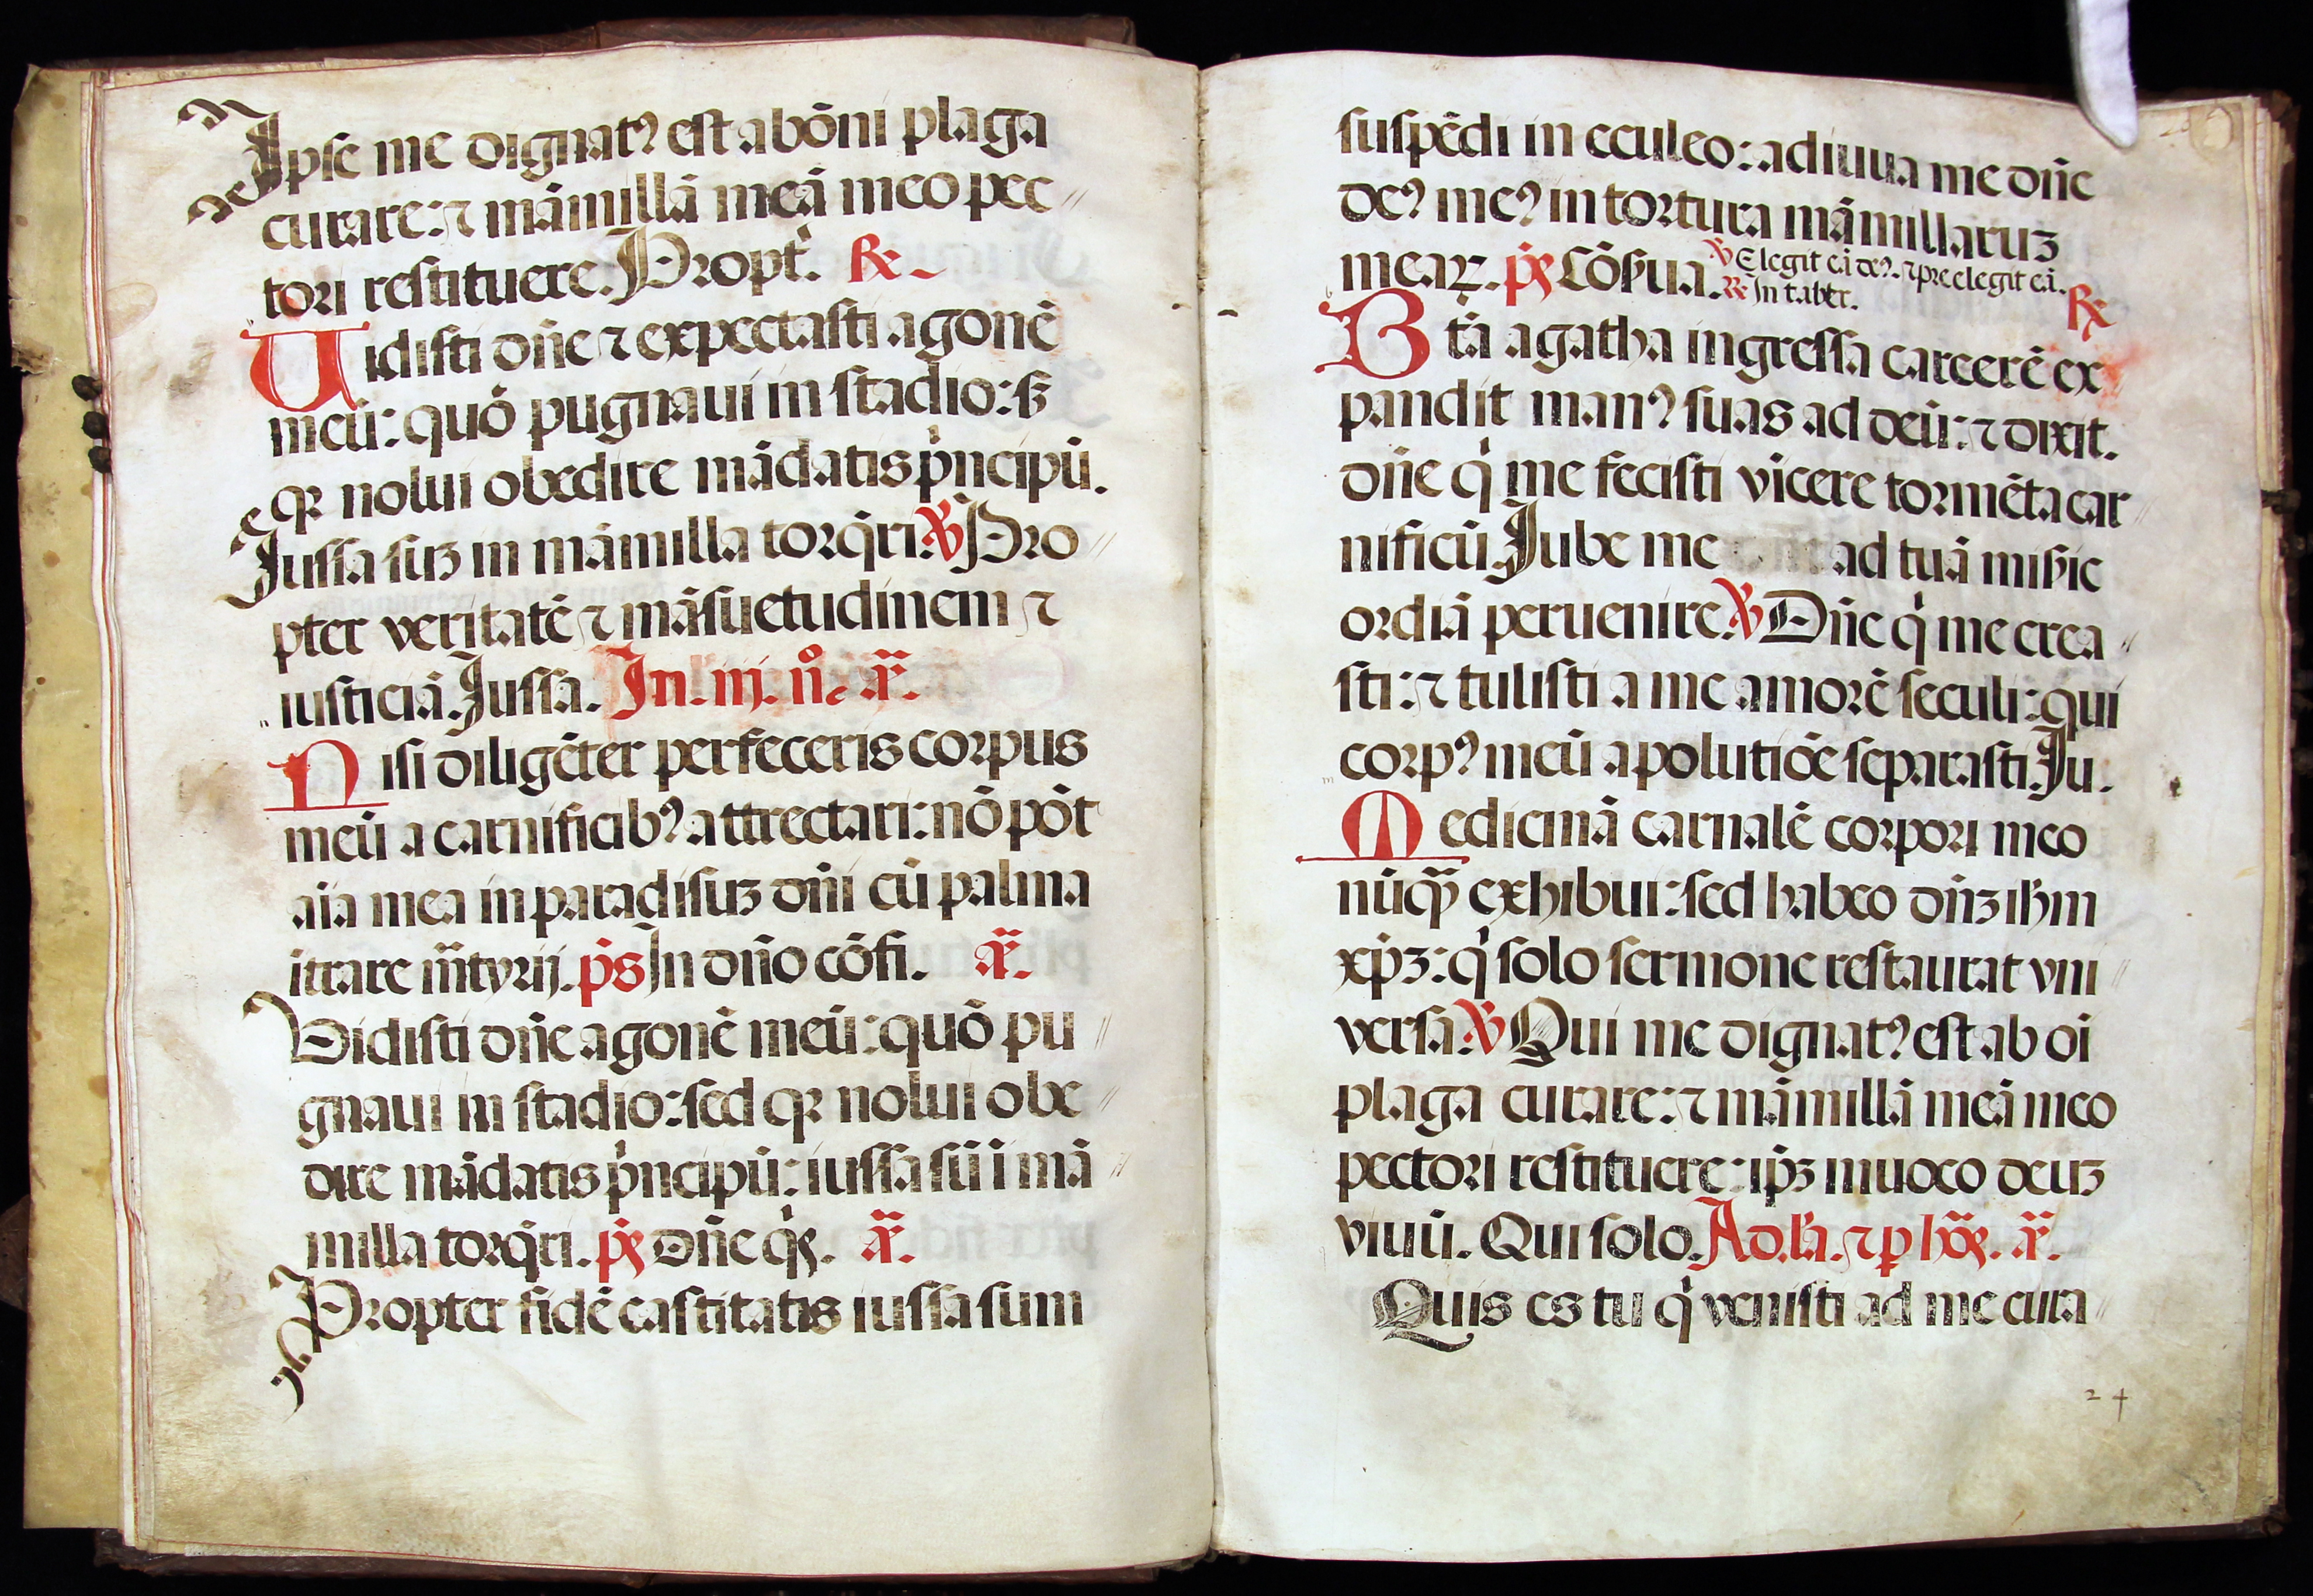 Ipse me dignatꝰ est ab õni plaga
curare: ⁊ mãmillã meã meo pec
tori restituere. Propt̉. ℞
Uidisti dñe ⁊ expectasti agonẽ
meũ: quõ pugnaui in stadio: sꝫ
qꝛ nolui obedire mãdatis pⁱncipũ.
Iussa suꝫ in mãmilla torq̃ri. ℣ Pro
pter veritatẽ ⁊ mãsuetudinem ⁊
iusticiã. Iussa. In. iij. n̊. añ.
Nisi diligẽter perfeceris corpus
meũ a carnificibꝰ attrectari: nõ põt
aĩa mea in paradisuꝫ dñi cũ palma
ĩtrare m̃tyrij. ps̃ In dño cõfi. añ.
Vidisti dñe agonẽ meũ: quõ pu
gnaui in stadio: sed qꝛ nolui obe
dire mãdatis pⁱncipũ: iussa sũ ĩ mã
milla torq̃ri. ps̃ Dñe qⁱs. añ.
Propter fidẽ castitatis iussa sum
suspẽdi in eculeo: adiuua me dñe
deꝰ meꝰ in tortura mãmillaruꝫ
meaꝝ. ps̃ Cõẜua. ℣ Elegit eã deꝰ. ⁊ pre elegit eã.
℟ In taber. ℞
Btã agatha ingressa carcerẽ ex
pandit manꝰ suas ad deũ: ⁊ dixit.
dñe qⁱ me fecisti vĩcere tormẽta car
nificũ. Iube me ad tuã miẜic
ordiã peruenire. ℣ Dñe qⁱ me crea
sti: ⁊ tulisti a me amorẽ seculi: qui
corpꝰ meũ a polutiõe separasti. Iu.
Medicinã carnalẽ corpori meo
nũqꝫ̃ exhibui: sed habeo dñꝫ ihm̃
xp̃ꝫ: qⁱ solo sermone restaurat vni
versa. ℣ Qui me dignatꝰ est ab oĩ
plaga curare: ⁊ mãmillã meã meo
pectori restituere: ip̃ꝫ inuoco deuꝫ
viuũ. Qui solo. Ad. la. ⁊ ꝑ hõs. añ.
Quis es tu qⁱ venisti ad me cura
24